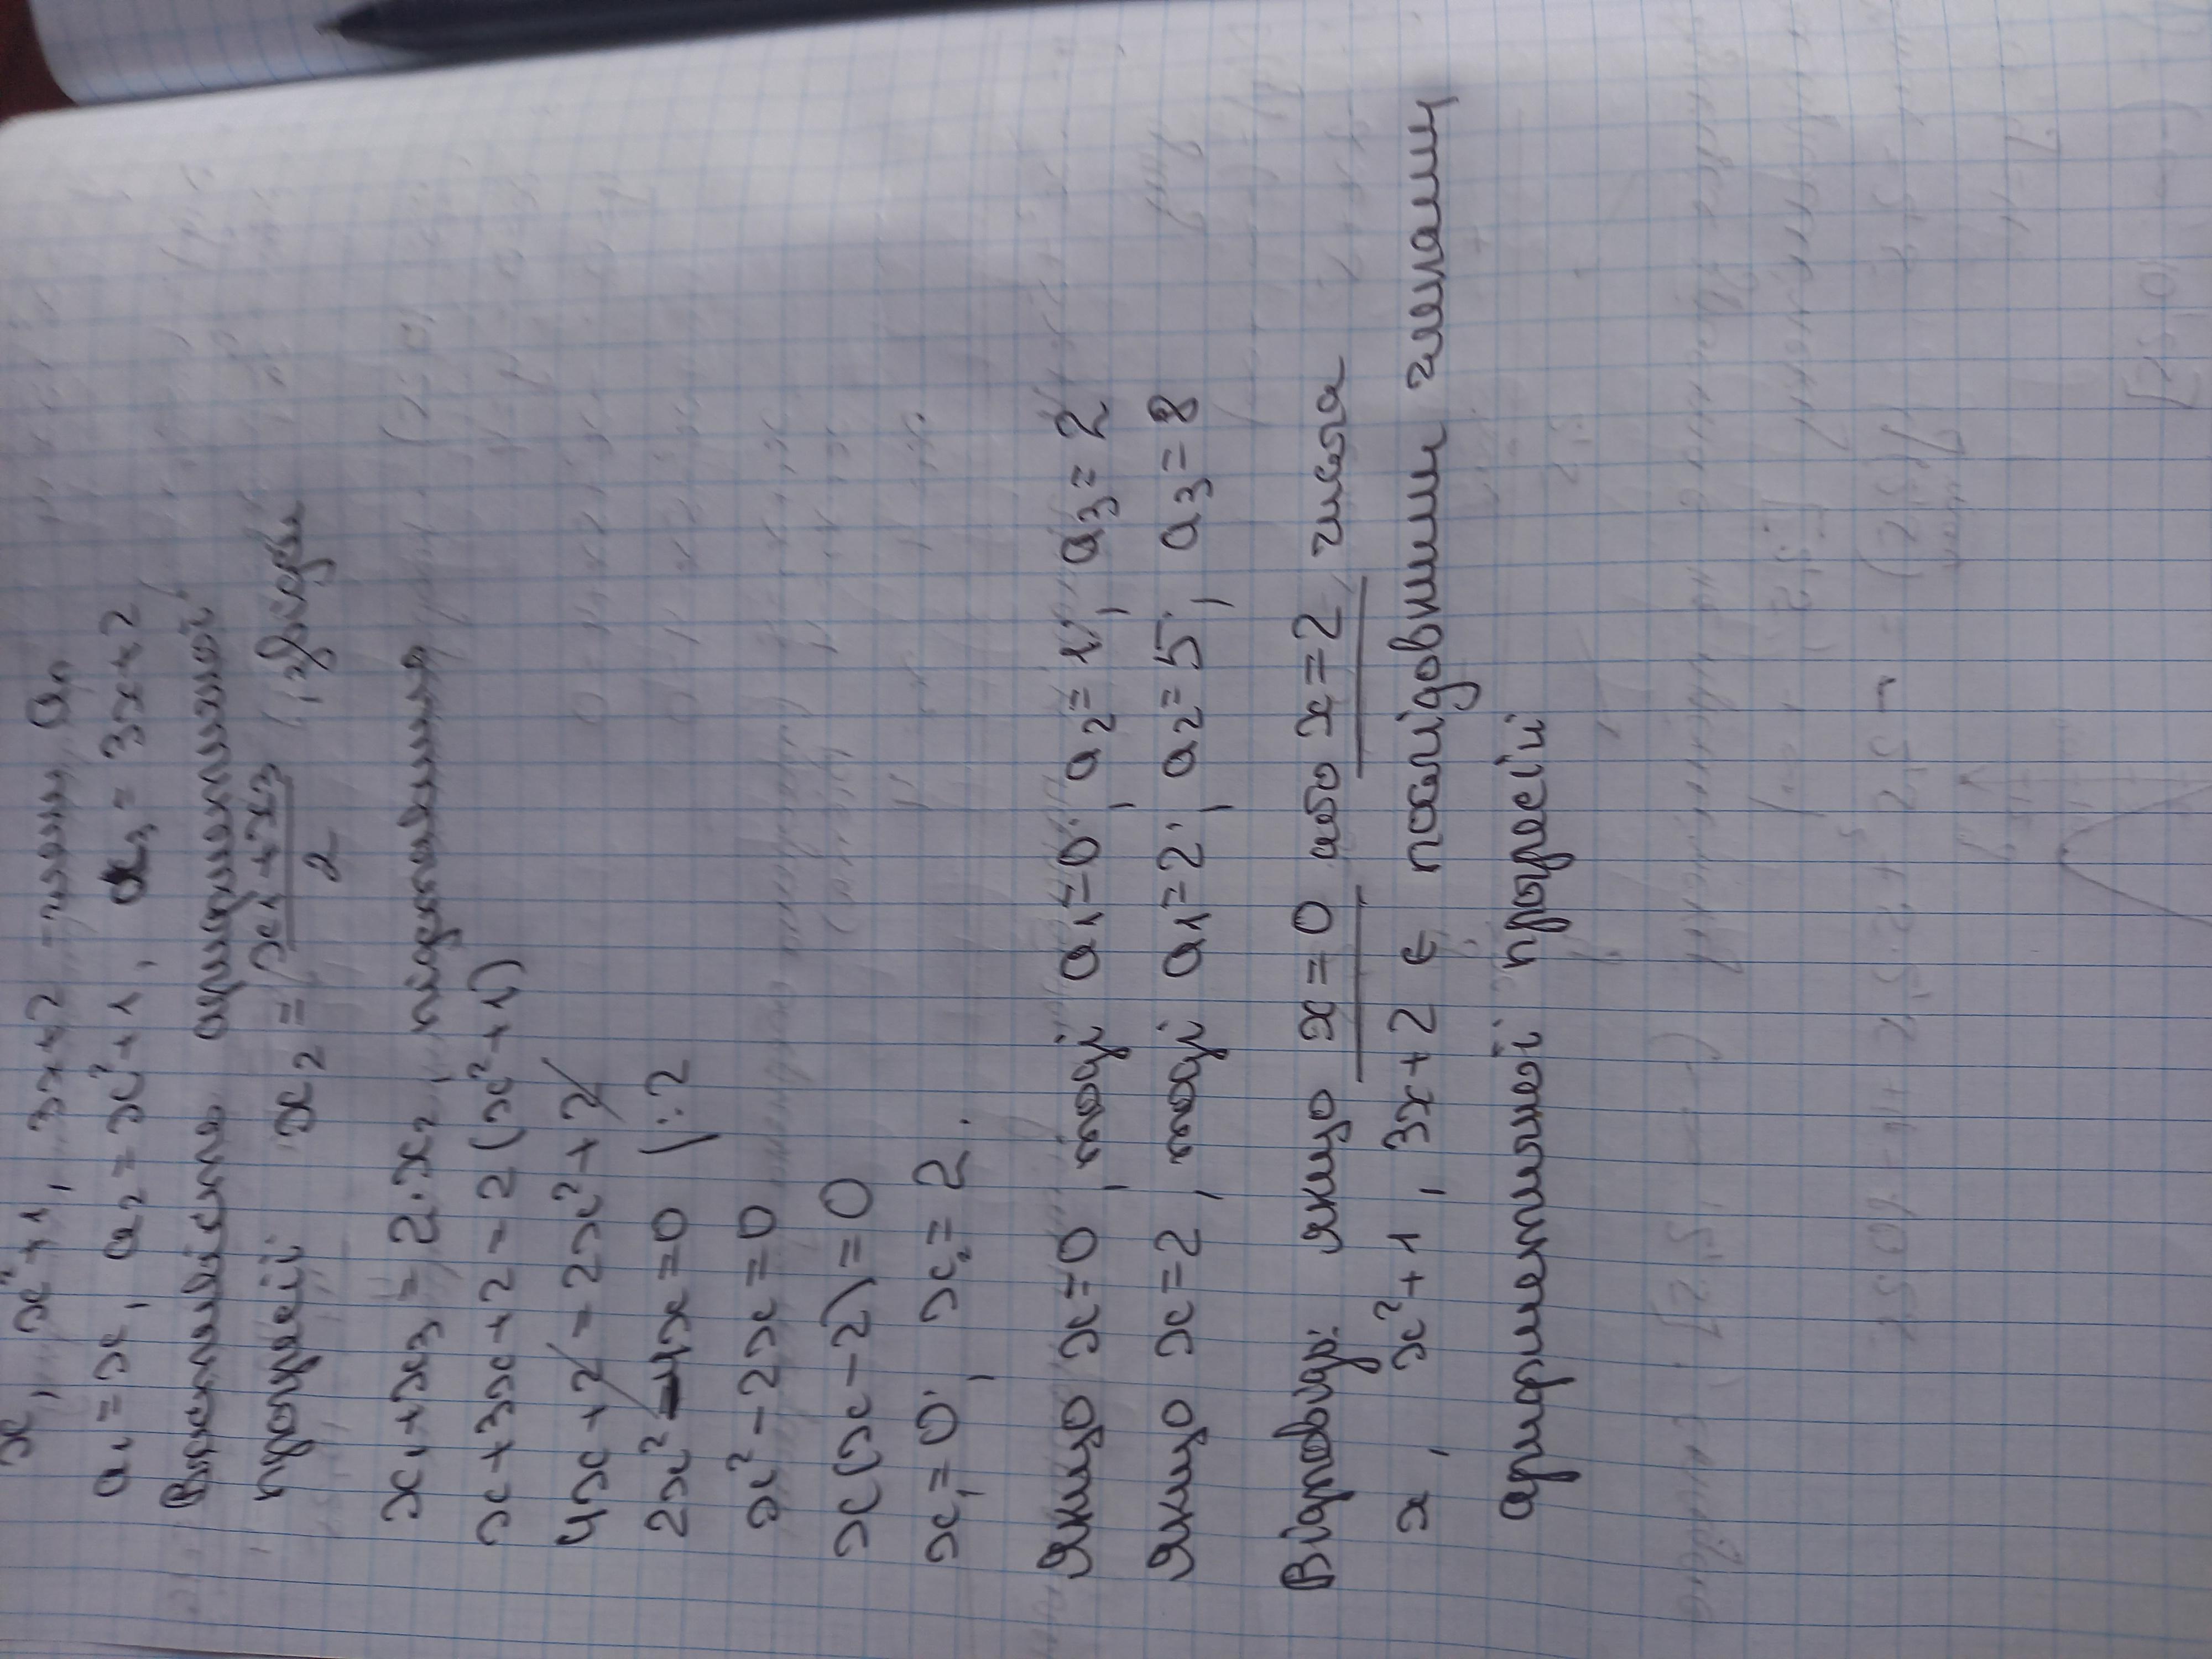 x, x²+1, 3x+2 – члени aₙ
a₁ = x, a₂ = x²+1, a₃ = 3x+2
Властивість арифметичної
прогресії: x₂ = (x₁+x₃)/2, звідси
x₁+x₃ = 2·x₂, підставимо
x+3x+2 = 2(x²+1)
4x+2 = 2x²+2
2x²-4x=0 |:2
x²-2x=0
x(x-2)=0
x₁=0; x₂=2.
Якщо x=0, тоді a₁=0; a₂=1; a₃=2
Якщо x=2, тоді a₁=2; a₂=5; a₃=8
Відповідь: якщо x=0 або x=2, числа
x, x²+1, 3x+2 є послідовними членами
арифметичної прогресії